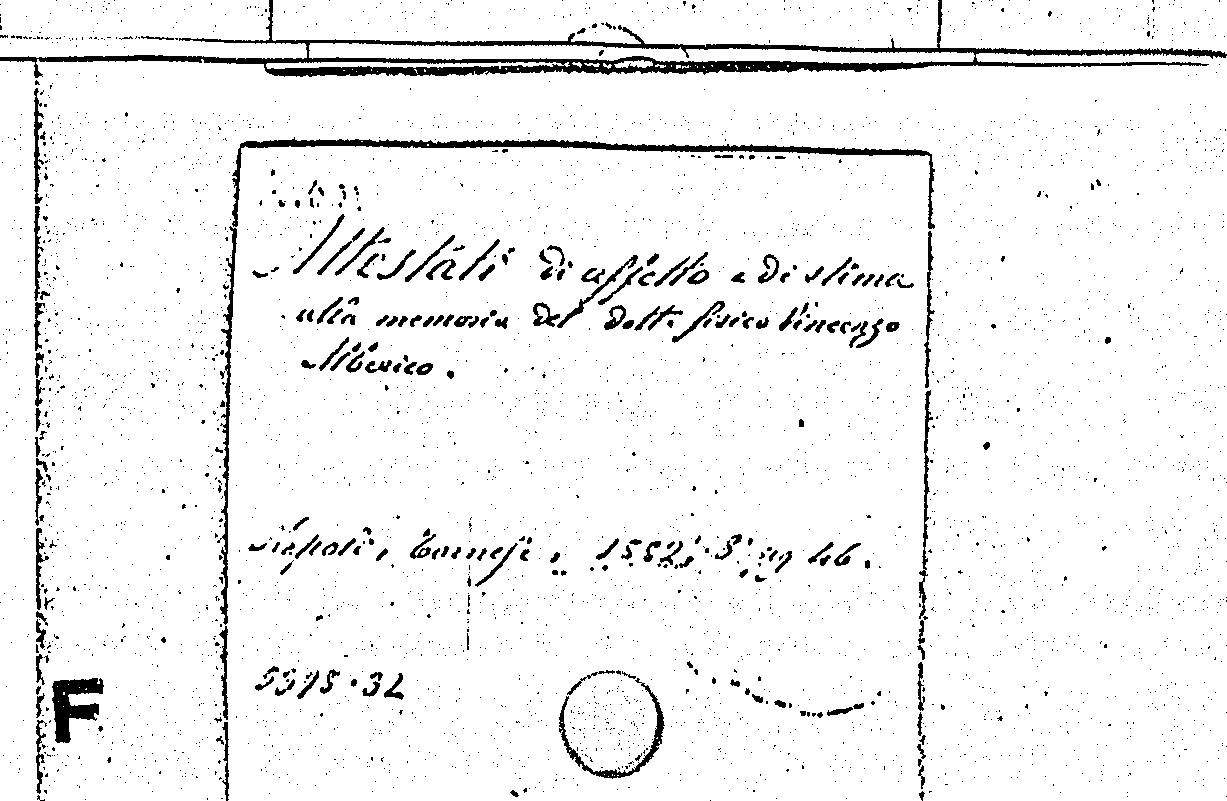 Attestati di affetto e di stima
alla memoria del dott. fisico Vincenzo
Alberico.
Napoli, Tornese, 1852; 8; pg 46.
5575.32
F